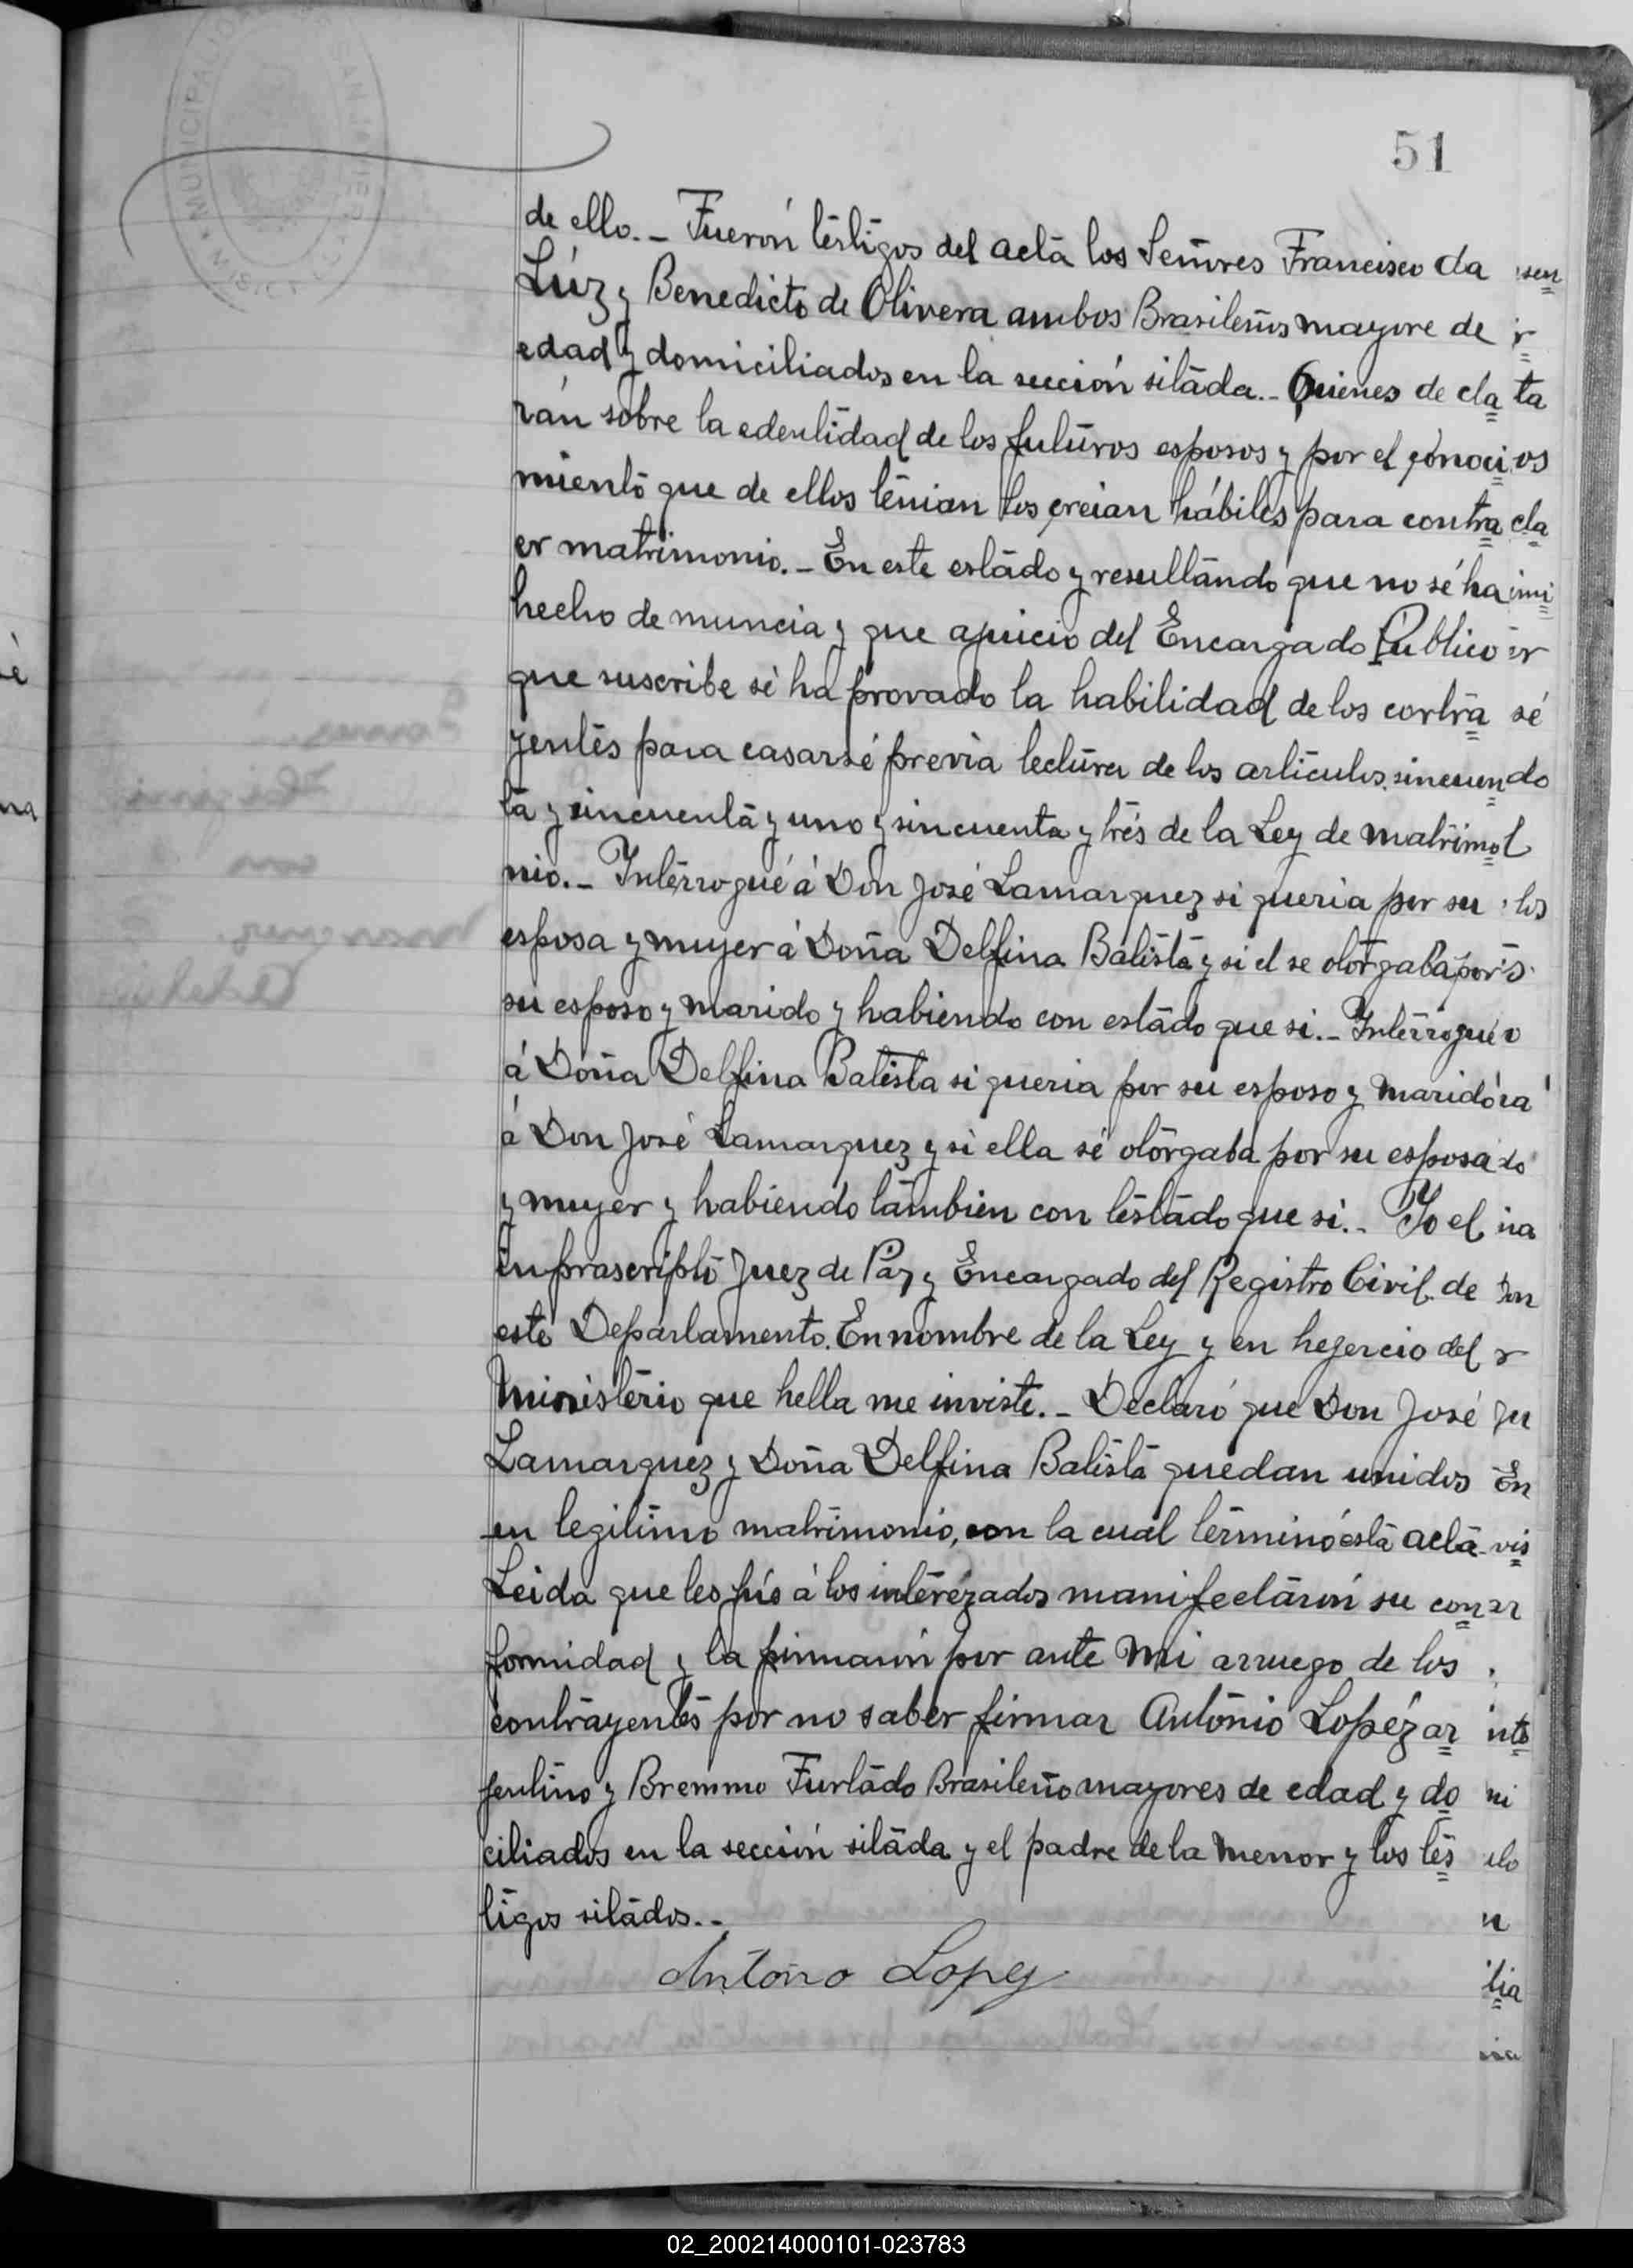 51
de ello. _ Fuerón téstigos del acta los Señores Francisco da
Lúz y Benedicto de Olivera ambos Brasileños mayore de
edad y domiciliados en la sección sitada._ Quienes de cla
rán sobre la edentidad de los futuros esposos y por el conoci
miento que de ellos ténian los creian hábiles para contra
er matrimonio._ En este estado y resultando que no sé ha
hecho de muncia y que ajuicio del Encargado Público
que suscribe sé ha provado la habilidad de los contra
yentés para casarsé previa lectura de los articulos sincuen
ta y sincuenta y uno y sincuenta y trés de la Ley de matrimo
nio._ Intérrogué á Don José Lamarquez si queria por su
esposa y muyer á Doña Delfina Batista y si el se otorgaba por
su esposo y marido y habiendo con estado que si._ Intérrogué
á Doña Delfina Batista si queria por su esposo y marido
á Don José Lamarquez y si ella sé otorgaba por su esposa
y muyer y habiendo tambien con téstado que si._ Yo el
infrascripto Juez de Paz y Encargado del Registro Civil de
este Departamento. En nombre de la Ley y en hejercio del
Ministério que hella me inviste._ Declaró que Don José
Lamarquez y Doña Delfina Batista quedan unidos
en legitimo matrimonio, con la cual términó ésta acta
Leida que les fué á los intérézados manifectarón su con
formidad y la firmarón por ante mi arruego de los
contrayentés por no saber firmar António Lopéz ar
jentino y Bremmo Furtado Brasileño mayores de edad y do
ciliados en la sección sitada y el padre de la menor y los tés
tigos sitados._
Antonio Lopez
02_200214000101-023783